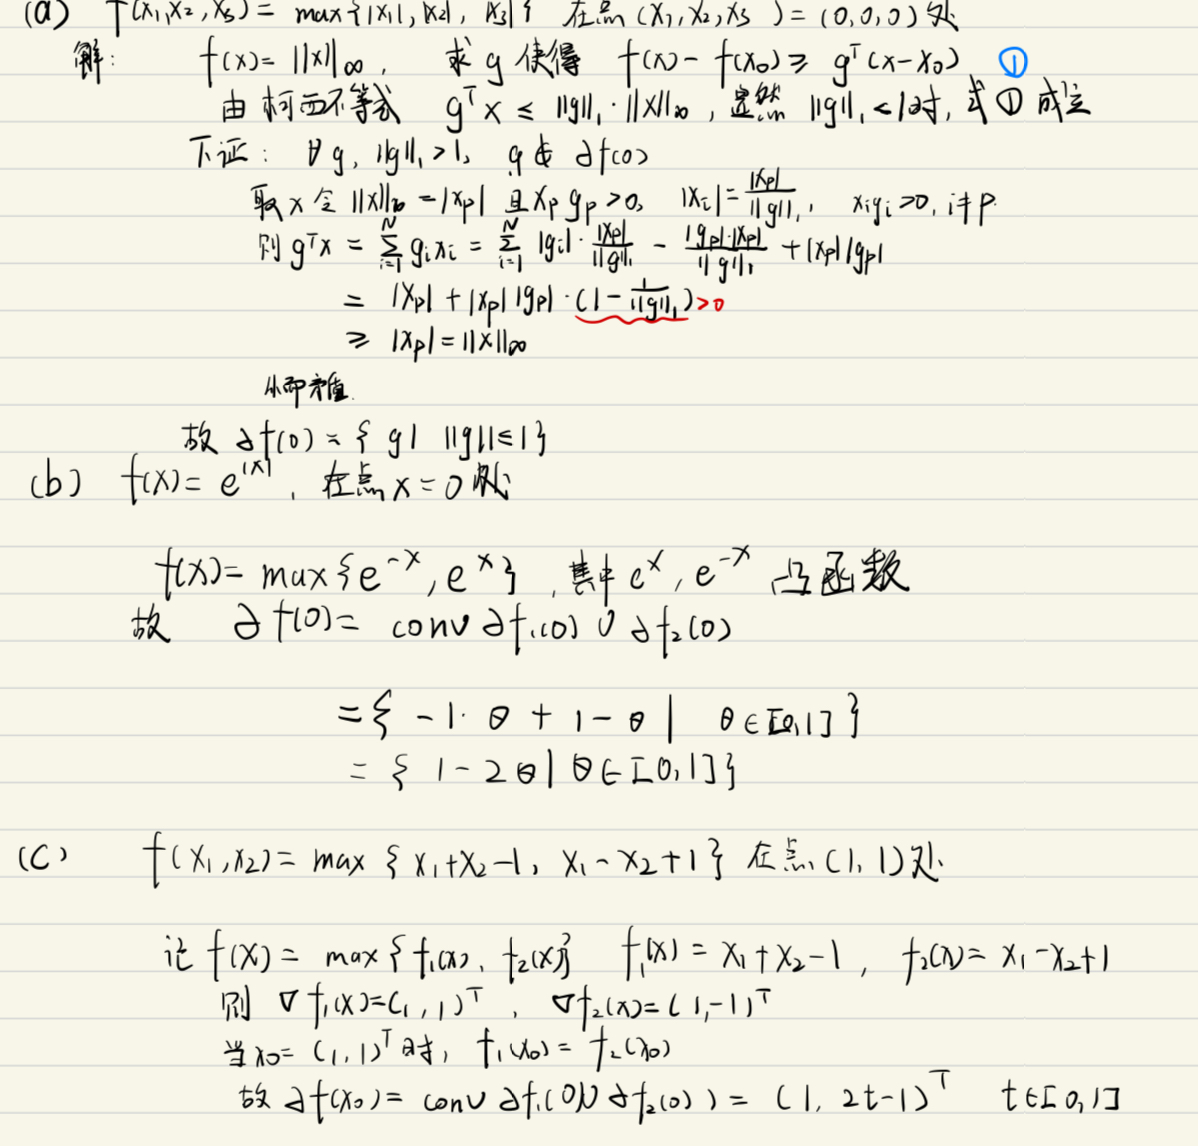 (a) f(x₁,x₂,x₃) = max{|x₁|, |x₂|, |x₃|} 在点 (x₁,x₂,x₃) = (0,0,0) 处
解: f(x) = ||x||∞, 求 g 使得 f(x) - f(x₀) ≥ gᵀ(x-x₀) ①
由柯西不等式 gᵀx ≤ ||g||₁·||x||∞, 显然 ||g||₁ < 1时, 式①成立
下证: ∀g, ||g||₁ > 1, g ∉ ∂f(0)
取 x 令 ||x||∞ = |xₚ| 且 xₚgₚ > 0, |xᵢ| = |xₚ|/||g||₁, xᵢgᵢ > 0, i≠p.
则 gᵀx = Σᵢ₌₁ᴺ gᵢxᵢ = Σᵢ₌₁ᴺ |gᵢ|·|xₚ|/||g||₁ - |gₚ|·|xₚ|/||g||₁ + |xₚ||gₚ|
= |xₚ| + |xₚ||gₚ|·(1 - 1/||g||₁) >0
≥ |xₚ| = ||x||∞
从而矛盾.
故 ∂f(0) = {g| ||g||≤1}
(b) f(x) = e^|x|, 在点 x=0 处
f(x) = max{e⁻ˣ, eˣ}, 其中 eˣ, e⁻ˣ 凸函数
故 ∂f(0) = conv ∂f₁(0) ∪ ∂f₂(0)
= { -1·θ + 1-θ | θ∈[0,1] }
= { 1-2θ | θ∈[0,1] }
(c) f(x₁,x₂) = max {x₁+x₂-1, x₁-x₂+1} 在点 (1,1) 处
记 f(x) = max{f₁(x), f₂(x)} f₁(x) = x₁+x₂-1, f₂(x) = x₁-x₂+1
则 ∇f₁(x)=(1,1)ᵀ, ∇f₂(x)=(1,-1)ᵀ
当 x₀ = (1,1)ᵀ 时, f₁(x₀) = f₂(x₀)
故 ∂f(x₀) = conv ∂f₁(0)∪∂f₂(0)) = (1, 2t-1)ᵀ t∈[0,1]